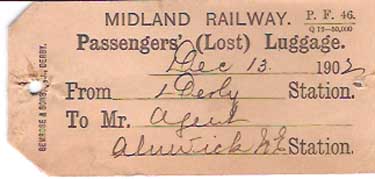 MIDLAND RAILWAY. P. F. 46.
Q 12—50,000
Passengers' (Lost) Luggage.
Dec 13 1902
From Derby Station.
To Mr. Agent
Alnwick NE Station.
BEMROSE & SONS, LD., DERBY.